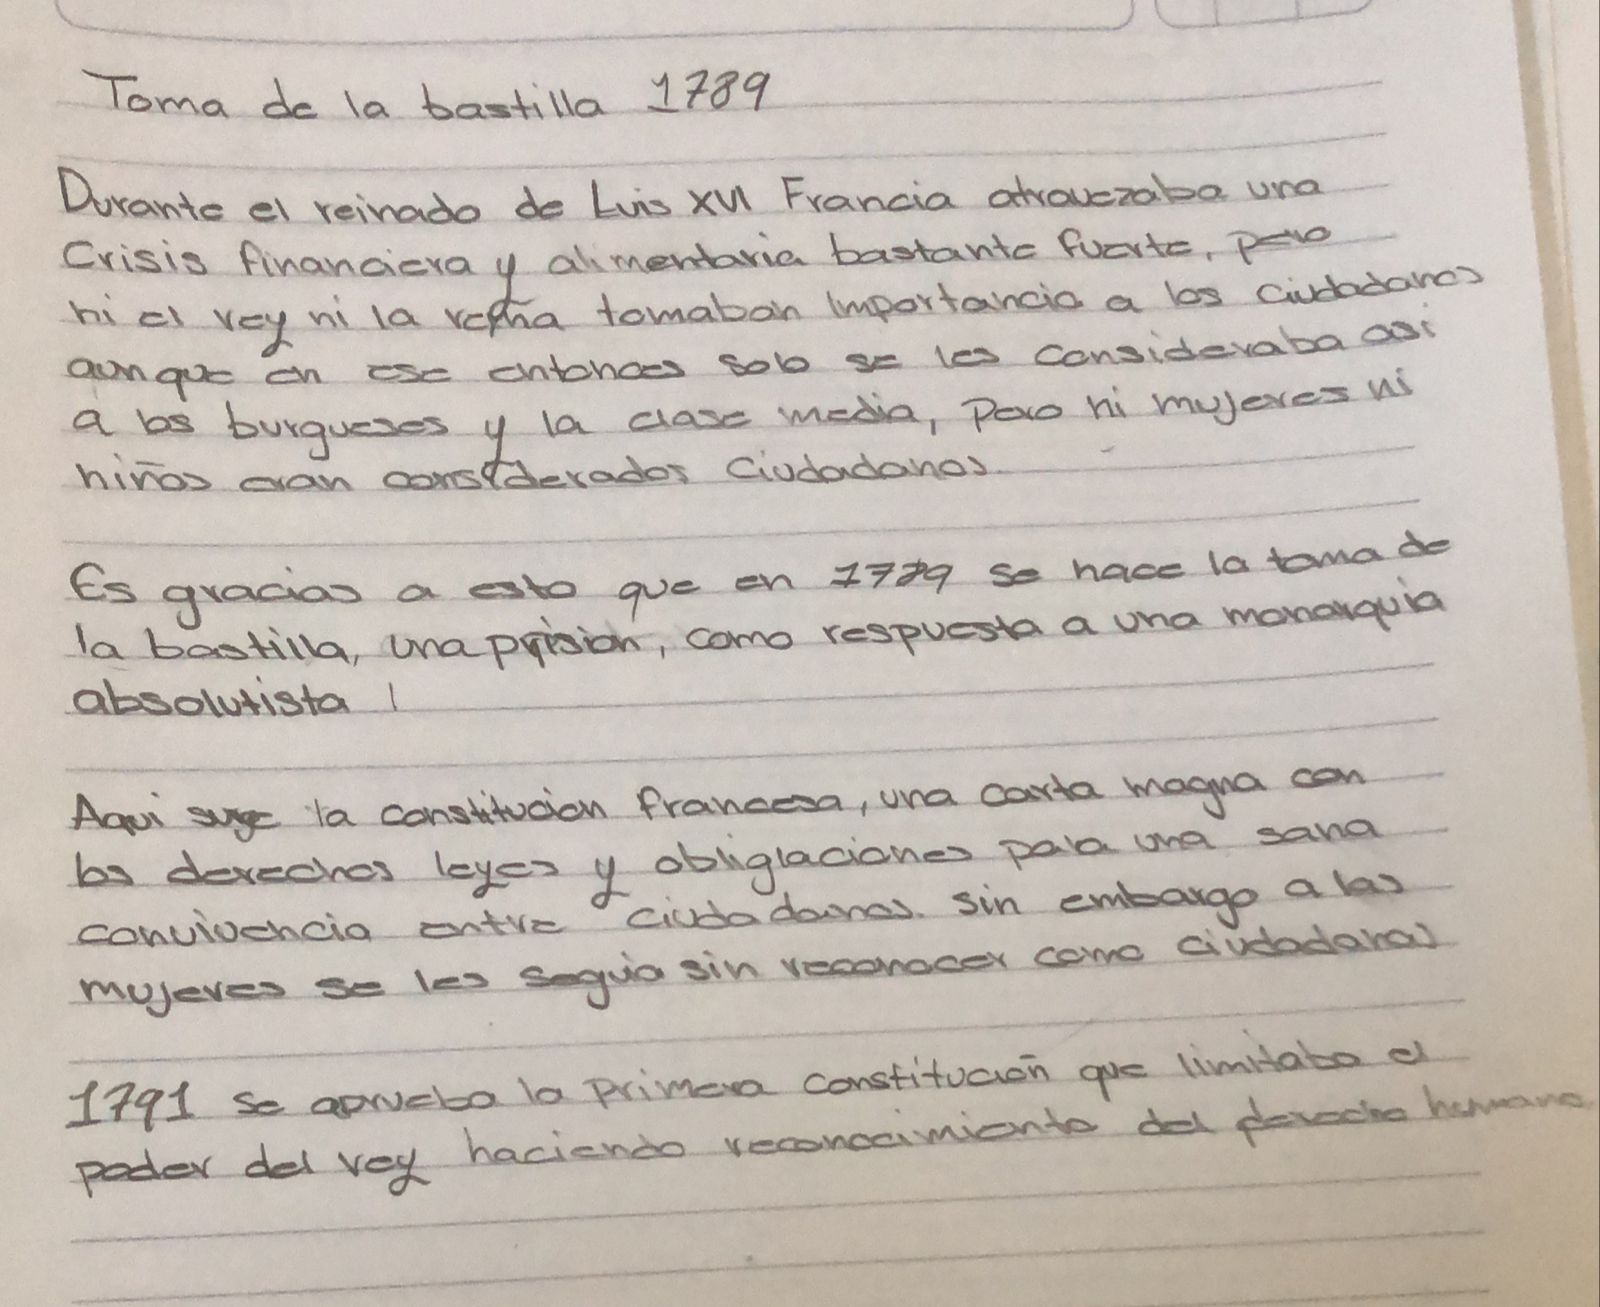 Toma de la bastilla 1789
Durante el reinado de Luis XVI Francia atravezaba una
Crisis financiera y alimentaria bastante fuerte, pero
ni el rey ni la reina tomaban importancia a los ciudadanos
aunque en ese entonces solo se les consideraba asi
a los burgueses y la clase media, pero ni mujeres ni
niños eran considerados ciudadanos
Es gracias a esto que en 1789 se hace la toma de
la bastilla, una prision, como respuesta a una monarquia
absolutista
Aqui surge la constitucion francesa, una carta magna con
los derechos leyes y obliglaciones para una sana
convivencia entre ciudadanos. sin embargo a las
mujeres se les seguia sin reconocer como ciudadanas
1791 se aprueba la primera constitución que limitaba el
poder del rey haciendo reconocimiento del derecho humano